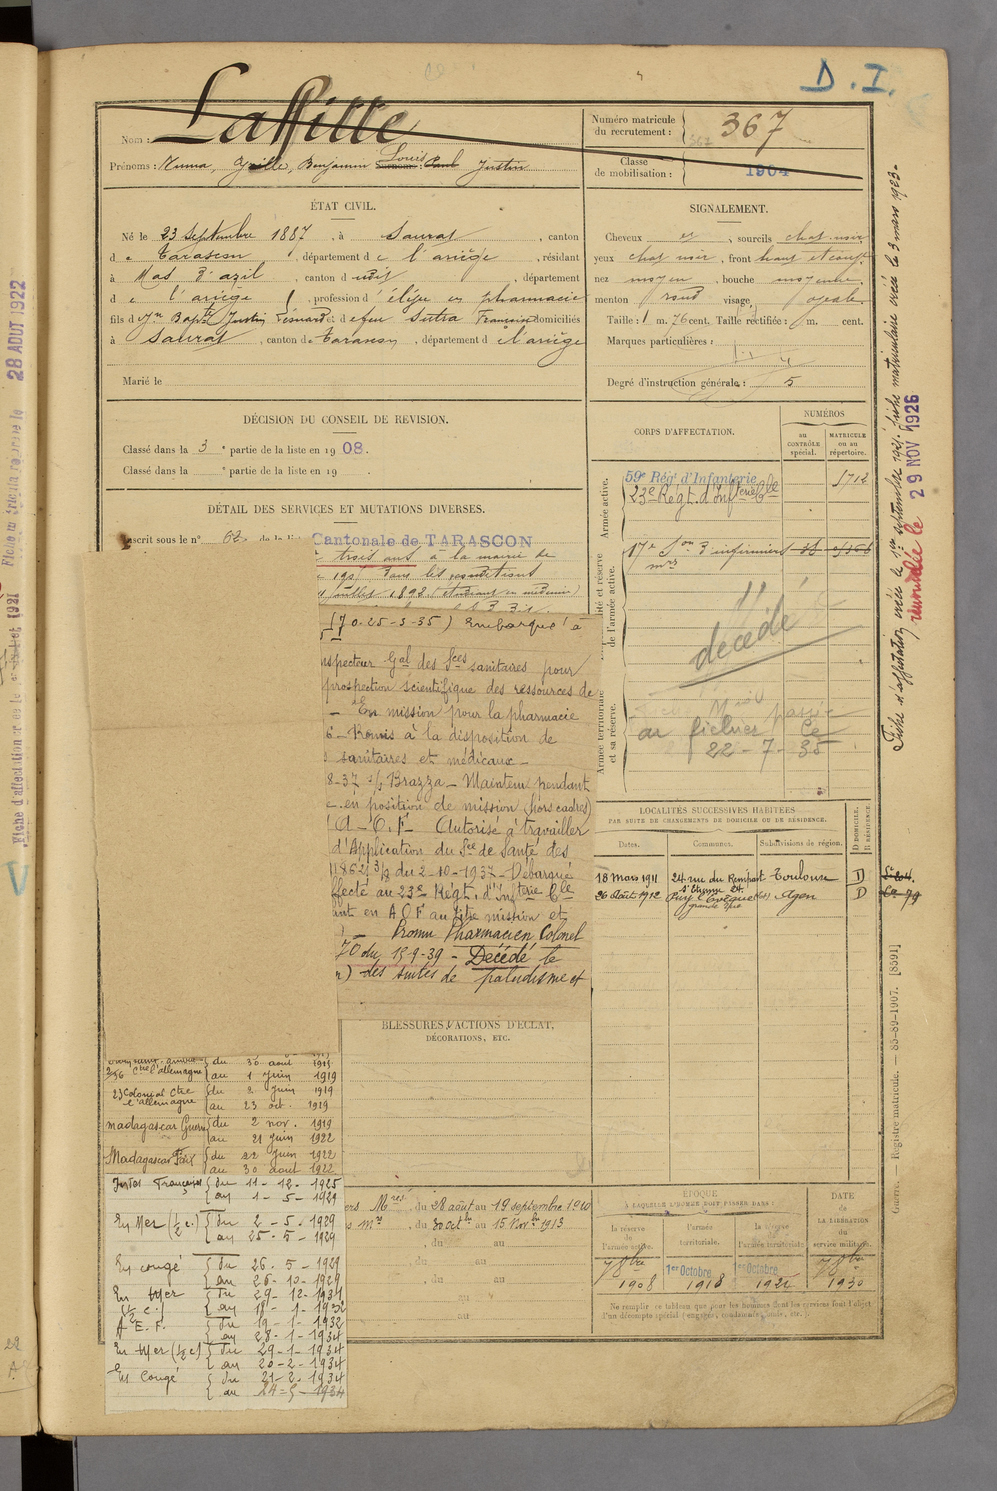 D. I.
Nom : Laffitte
Prénoms : Numa, Benjamin Louis Paul Justin
Numéro matricule du recrutement : 367
Classe de mobilisation : 1904
ÉTAT CIVIL.
Né le 23 Septembre 1887, à Saurat, canton
de Tarascon, département de l'ariège, résidant
à Mas d'azil, canton dudit, département
de l'ariège, profession d'élève en pharmacie
fils de Jn Bapte Justin Léonard et de feu Sutra Françoise domiciliés
à Saurat, canton de Tarascon, département de l'ariège
Marié le
SIGNALEMENT.
Cheveux, sourcils chat. noir
yeux chat noir, front haut et
nez moyen, bouche moyenne
menton rond visage ovale
Taille : 1 m. 76 cent. Taille rectifiée : m. cent.
Marques particulières :
Degré d'instruction générale : 5
DÉCISION DU CONSEIL DE REVISION.
Classé dans la 3e partie de la liste en 1908.
Classé dans la e partie de la liste en 19
DÉTAIL DES SERVICES ET MUTATIONS DIVERSES.
Inscrit sous le n° 62 de la liste Cantonale de TARASCON
trois ans à la mairie de
1907 dans les conditions
juillet 1892 (étudiant en médecine)
(70-25-3-35) Embarqué à
nspecteur Gal des Sces sanitaires pour
prospection scientifique des ressources de
- En mission pour la pharmacie
6 - Remis à la disposition de
sanitaires et médicaux -
8-37 Brazza - Maintenu pendant
en position de mission (hors cadres)
A-O.F. Autorisé à travailler
d'Application du Sce de Santé des
1862 3/8 du 2-10-1937 - Débarqué
ffecté au 23e Régt. d'Infterie Cle
ant en AOF au titre mission et
- Promu Pharmacien Colonel
70 du 15-9-39 - Décédé le
des suites de paludisme et
CORPS D'AFFECTATION.
NUMÉROS
au CONTRÔLE spécial.
MATRICULE ou au répertoire.
Armée active.
59e Rég' d'Infanterie 1712
23e Régt. d'Infterie Cle
et réserve de l'armée active.
17e Son d'infirmiers mres
décédé
Armée territoriale et sa réserve.
au fichier Ce
22-7-35
LOCALITÉS SUCCESSIVES HABITÉES
PAR SUITE DE CHANGEMENTS DE DOMICILE OU DE RÉSIDENCE.
Dates. Communes. Subdivisions de région. D DOMICILE. R RÉSIDENCE.
18 Mars 1911 24 rue du Rempart St Etienne 24. Toulouse D
26 Août 1912 Puy l'Evêque (Lot) grande rue Agen D
BLESSURES, ACTIONS D'ÉCLAT,
DÉCORATIONS, ETC.
du 30 août 1914
2/56 Ctre l'allemagne au 1 Juin 1919
23 Colonial Ctre l'allemagne du 2 Juin 1919
au 23 oct. 1919
madagascar Guerre du 2 nov. 1919
au 21 Juin 1922
Madagascar Paix du 22 Juin 1922
au 30 août 1922
Français du 11-12-1925
au 1-5-1929
En Mer (1/2 c.) du 2-5-1929
au 25-5-1929
En congé du 26-5-1929
au 26-10-1929
En Mer (1/2 c.) du 29-12-1931
au 18-1-1932
A.E.F. du 19-1-1932
au 28-1-1934
En Mer (1/2 c) du 29-1-1934
au 20-2-1934
En Congé du 21-2-1934
au 24-5-1934
du 28 août au 19 septembre 1910
du 30 octbre au 15 Novbre 1913
du au
du au
du au
au
au
ÉPOQUE
À LAQUELLE L'HOMME DOIT PASSER DANS :
la réserve de l'armée active.
l'armée territoriale.
la réserve de l'armée territoriale.
DATE DE LA LIBÉRATION du service militaire.
1908
1er Octobre 1918
1er Octobre
1930
Ne remplir ce tableau que pour les hommes dont les services font l'objet d'un décompte spécial (engagés, condamnés, omis, etc.).
Fiche d'affectation créée le 1er septembre 1921. Fiche matriculaire créée le 3 mars 1923.
renouvelée le 29 NOV 1926
Guerre. — Registre matricule. — 85-89-1907. [8591]
28 AOUT 1922